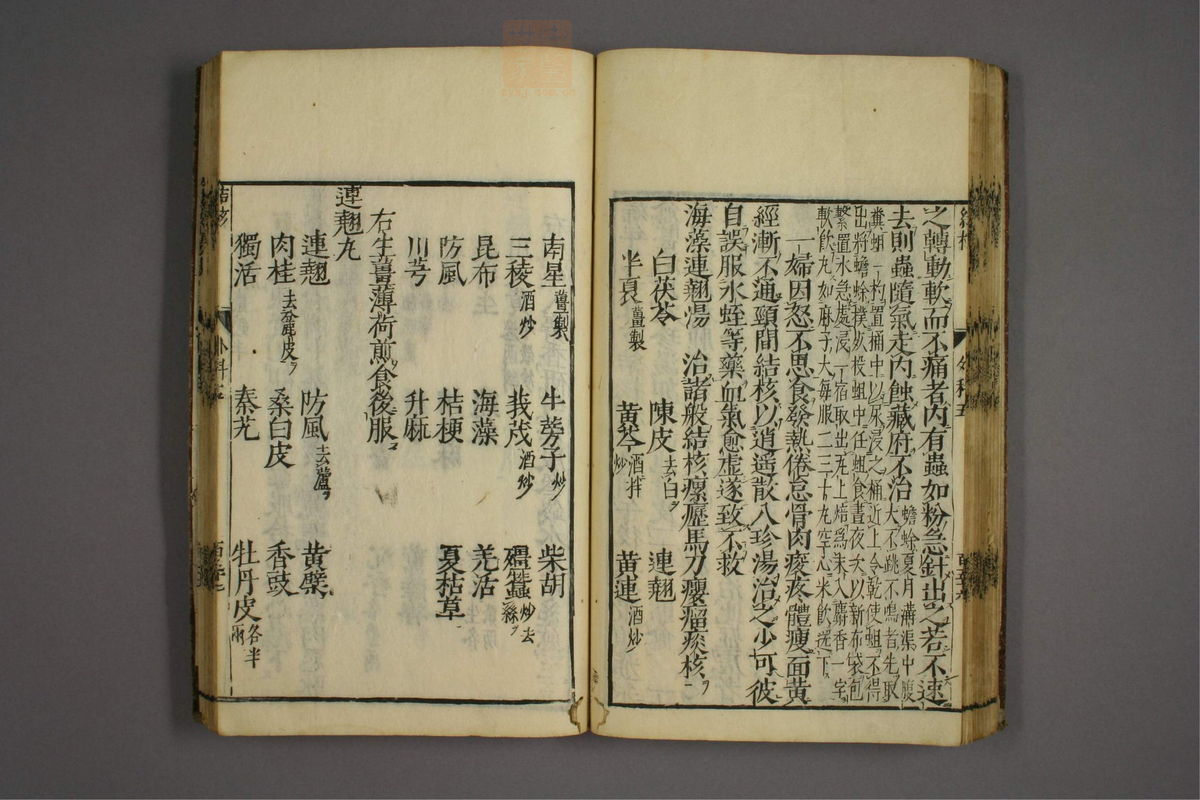 之轉動軟而不痛者內有蟲如粉急針出之若不速
去則蟲隨氣走內蝕藏府不治
蟾蜍夏月溝渠中腹
大不跳不鳴者先取
糞蛆一杓置桶中以尿浸之桶近上令乾使蛆不得
出將蟾蜍撲奴投蛆中任蛆食晝夜次以新布袋包
繫置水急處浸一宿取出瓦上焙為末入麝香一字
軟飯丸如麻子大每服二三十丸空心米飲送下
一婦因怒不思食發熱倦怠骨肉痠疼體瘦面黃
經漸不通頸間結核以逍遙散八珍湯治之少可彼
自誤服水蛭等藥血氣愈虛遂致不救
海藻連翹湯 治諸般結核瘰癧馬刀癭瘤痰核
白茯苓 陳皮去白 連翹
半夏薑製 黃芩酒拌炒 黃連酒炒
南星薑製 牛蒡子炒 柴胡
三稜酒炒 莪茂酒炒 殭蠶炒去絲
昆布 海藻 羌活
防風 桔梗 夏枯草
川芎 升麻
右生薑薄荷煎食後服
連翹丸
連翹 防風去蘆 黃蘗
肉桂去麄皮 桑白皮 香豉
獨活 秦艽 牡丹皮各半兩